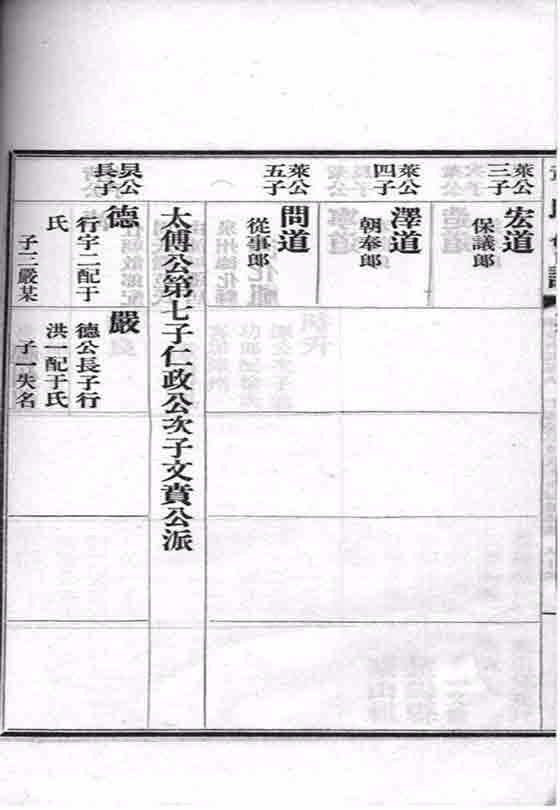 萊公
三子
宏道
保議郎
萊公
四子
澤道
朝奉郎
萊公
五子
問道
從事郎
太傅公第七子仁政公次子文賁公派
公
長子
德
行字二配于
氏
子三嚴某
嚴
德公長子行
洪一配于氏
子一失名